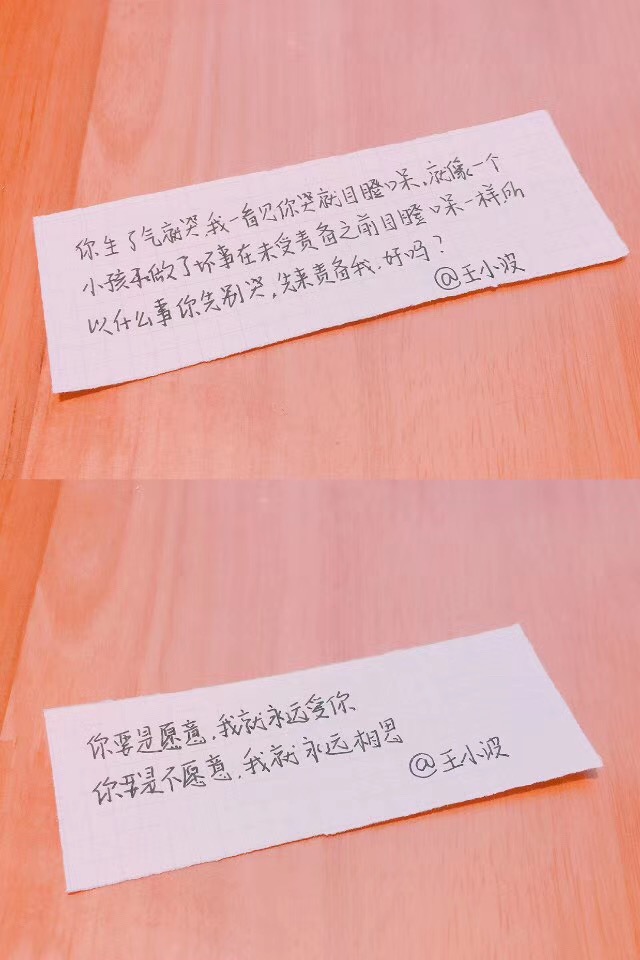 你生了气就哭,我一看见你哭就目瞪口呆,就像一个
小孩子做了坏事在未受责备之前目瞪口呆一样,所
以什么事你先别哭,先来责备我,好吗?
@王小波
你要是愿意,我就永远爱你
你要是不愿意,我就永远相思
@王小波